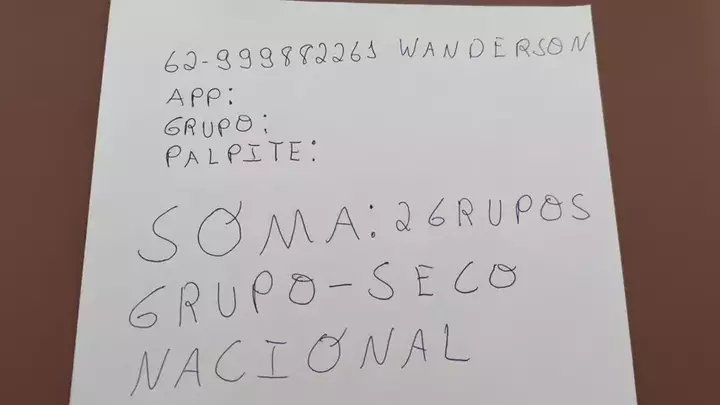 62-999882261 WANDERSON
APP:
GRUPO:
PALPITE:
SOMA: 2 GRUPOS
GRUPO-SECO
NACIONAL